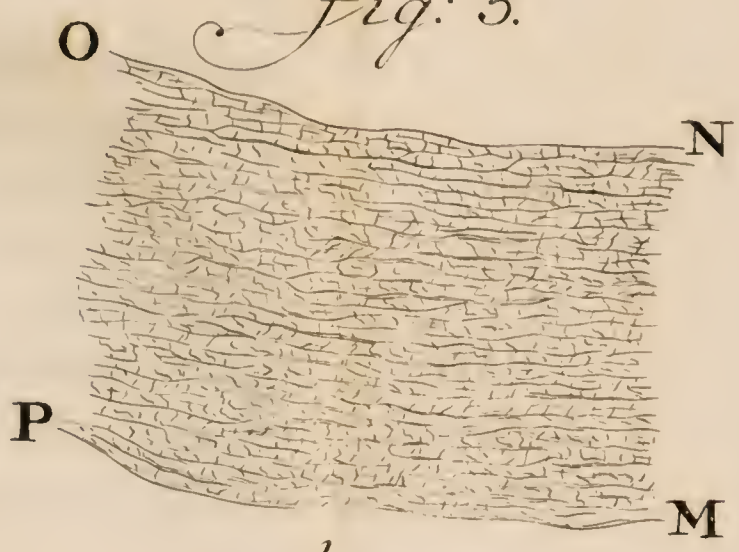 Fig: 5.
O
N
P
M